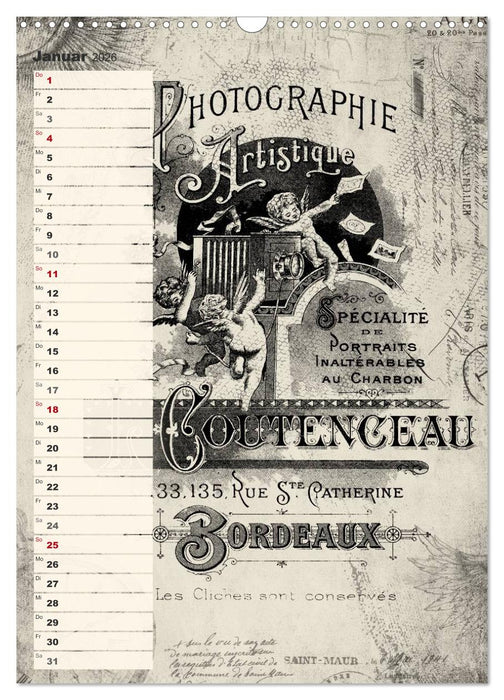 A GR
20 & 20bis Pass
Januar 2026
Do 1
Fr 2
Sa 3
So 4
Mo 5
Di 6
Mi 7
Do 8
Fr 9
Sa 10
So 11
Mo 12
Di 13
Mi 14
Do 15
Fr 16
Sa 17
So 18
Mo 19
Di 20
Mi 21
Do 22
Fr 23
Sa 24
So 25
Mo 26
Di 27
Mi 28
Do 29
Fr 30
Sa 31
PHOTOGRAPHIE
Artistique
SPÉCIALITÉ
DE
PORTRAITS
INALTÉRABLES
AU CHARBON
COUTENCEAU
33.135, RUE STE CATHERINE
BORDEAUX
Les Clichés sont conservés
SAINT-MAUR